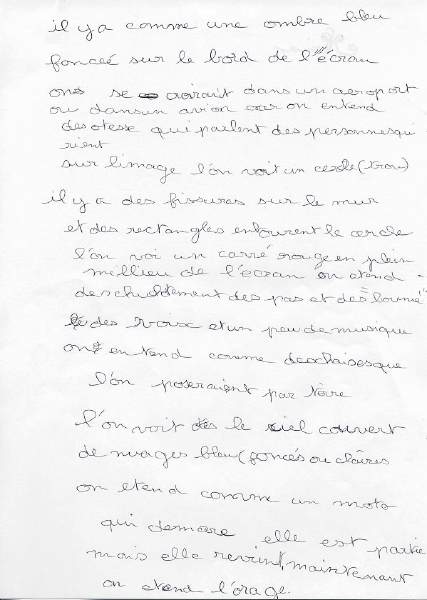 il y a comme une ombre bleu
foncé sur le bord de l'écran
ons se croirait dans un aeroport
ou dans un avion car on entend
des otesse qui parlent des personnes qui
rient
sur l'image l'on voit un cercle (trou)
il y a des fissures sur le mur
et des rectangles entourent le cercle
l'on voi un carré rouge en plein
millieu de l'écran on entend
des chuchotement des pas et des
des voix et un peu de musique
on entend comme des chaises que
l'on poseraient par terre
l'on voit le ciel couvert
de nuages bleu (foncés ou claires
on etend comme un moto
qui demare elle est partie
mais elle revint, maintenant
on etend l'orage.